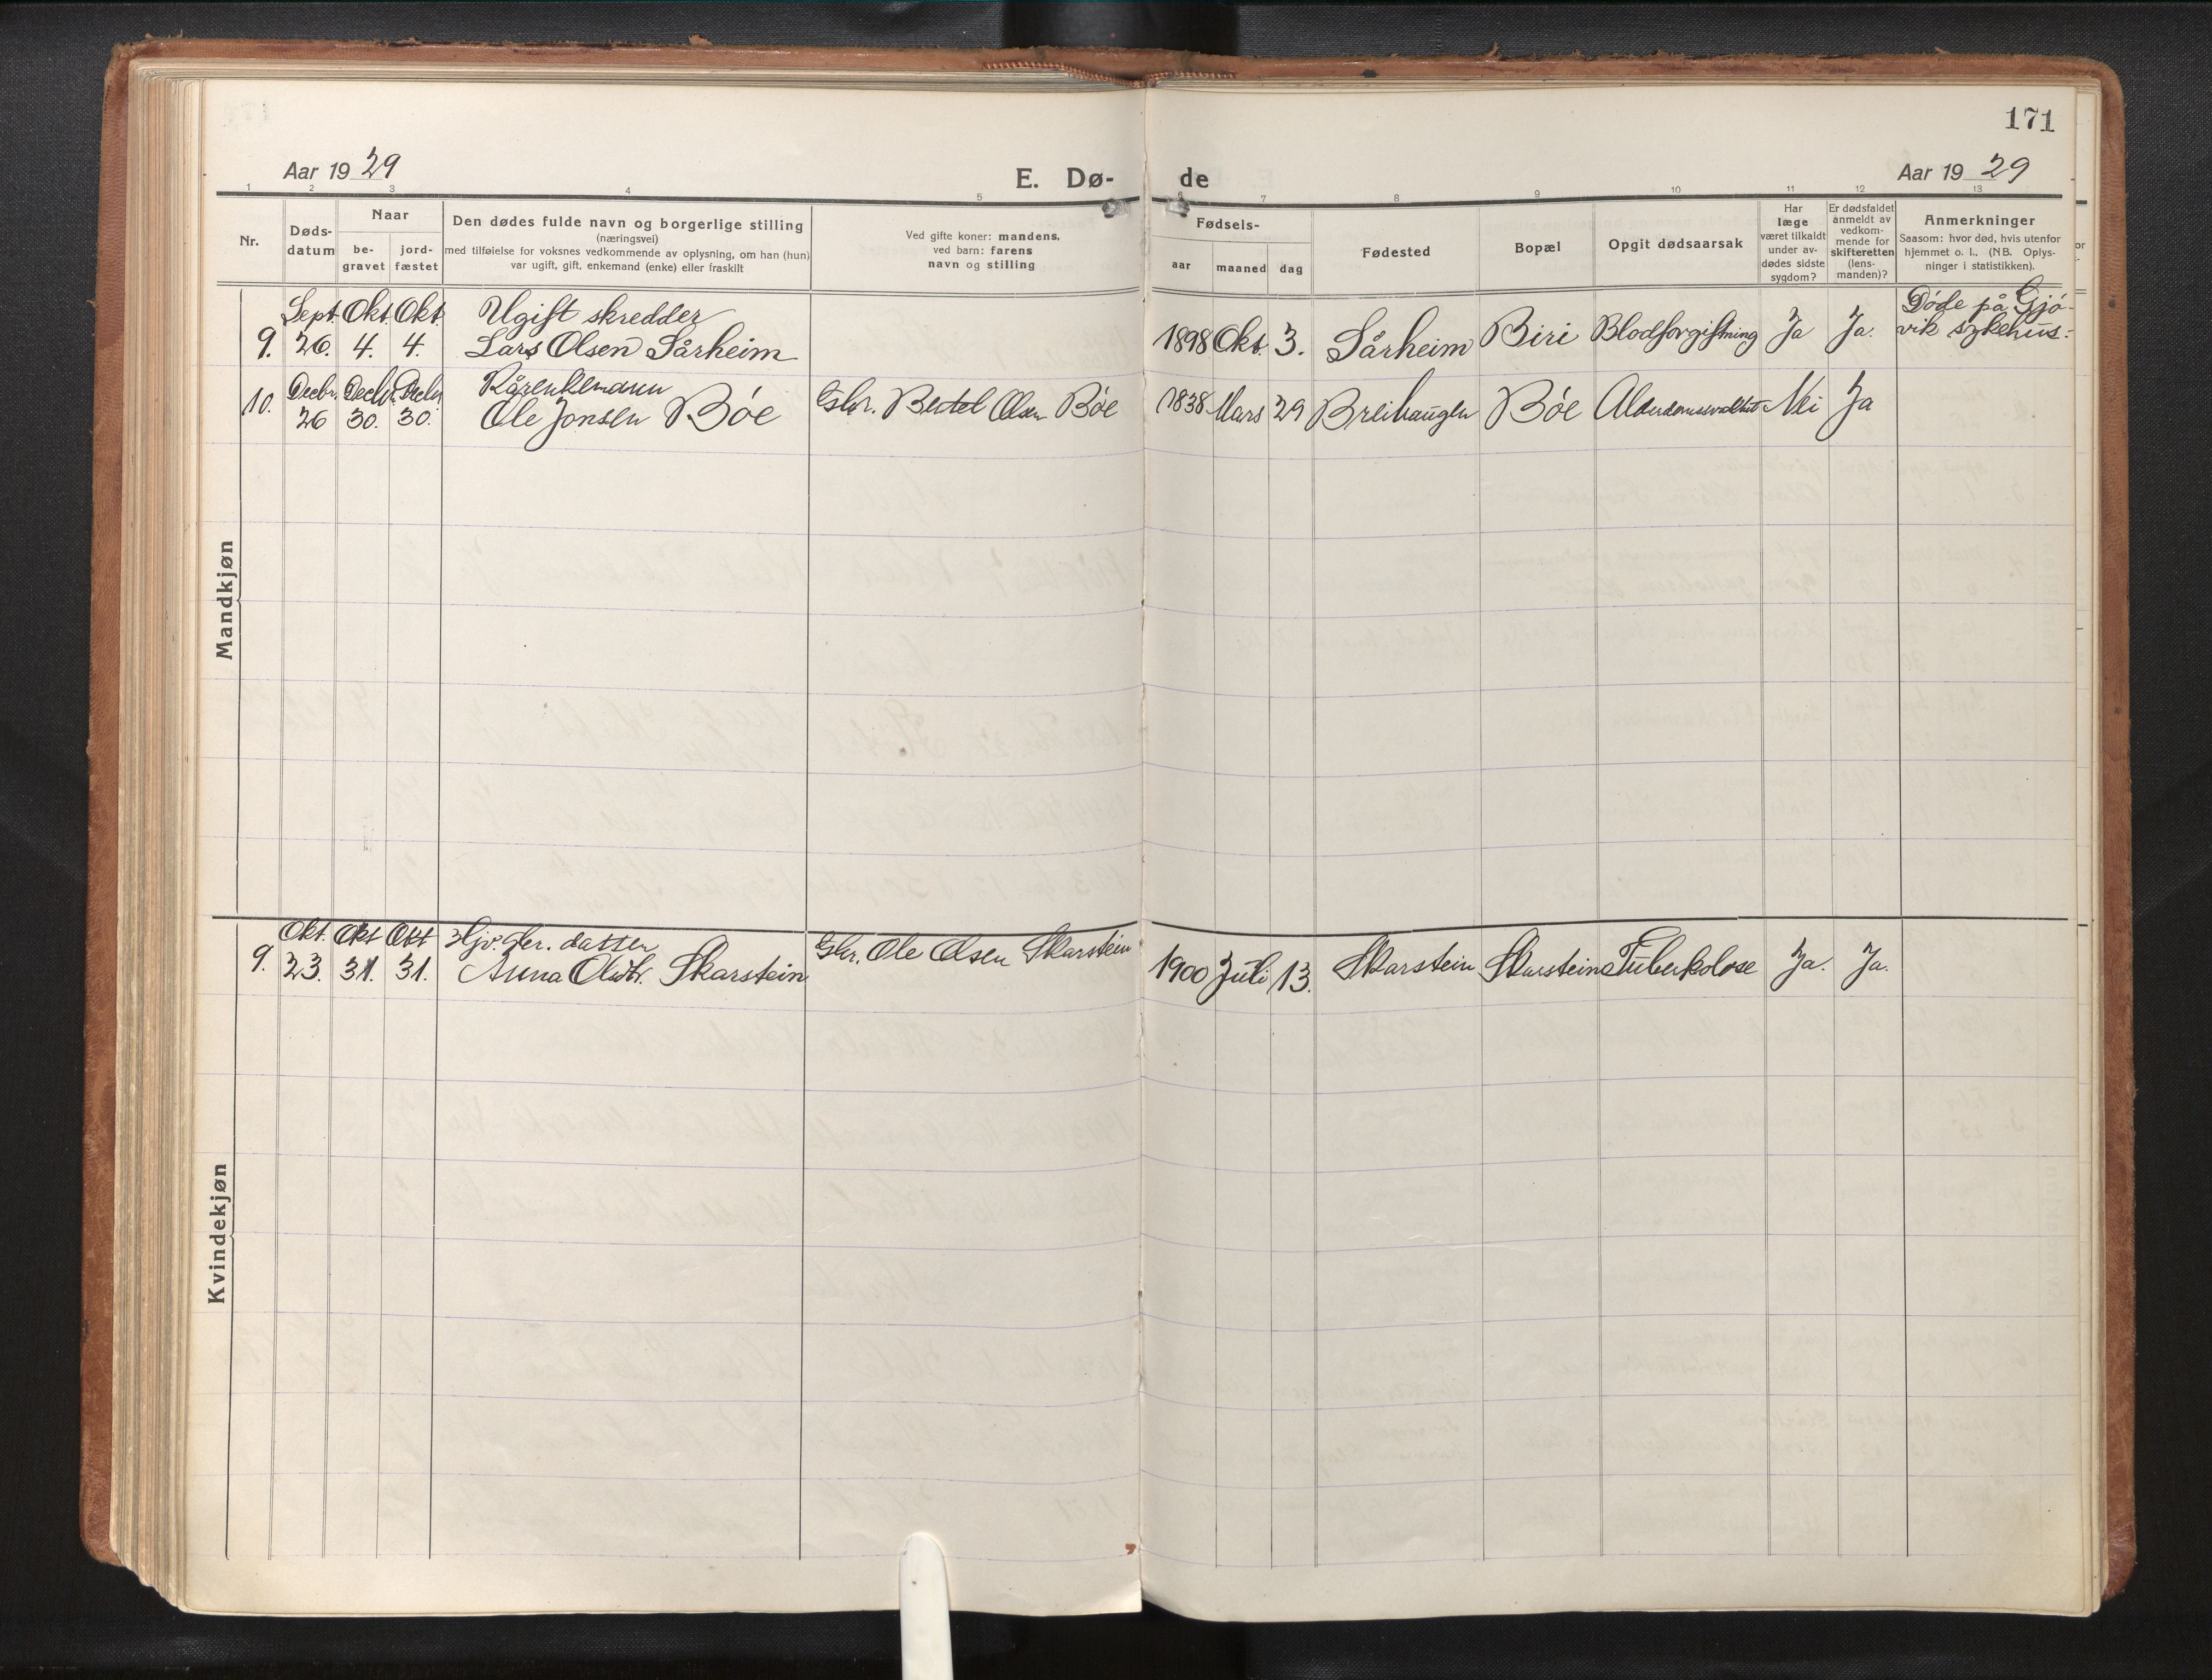 171
Aar 19 29
E. Dø- de
Aar 19 29
1 2 3 4 5 6 7 8 9 10 11 12 13
Nr.
Døds-
datum
Naar
be-
gravet
jord-
fæstet
Den dødes fulde navn og borgerlige stilling
(næringsvei)
med tilføielse for voksnes vedkommende av oplysning, om han (hun)
var ugift, gift, enkemand (enke) eller fraskilt
Ved gifte koner: mandens,
ved barn: farens
navn og stilling
Fødsels-
aar maaned dag
Fødested
Bopæl
Opgit dødsaarsak
Har
læge
været tilkaldt
under av-
dødes sidste
sygdom?
Er dødsfaldet
anmeldt av
vedkom-
mende for
skifteretten
(lens-
manden)?
Anmerkninger
Saasom: hvor død, hvis utenfor
hjemmet o. l., (NB. Oplys-
ninger i statistikken).
Mandkjøn
Sept. Okt. Okt. Ugift skredder Døde på Gjö-
9. 26. 4. 4. Lars Olsen Sårheim 1898 Okt. 3. Sårheim Biri Blodforgiftning Ja Ja. vik sykehus:
Decbr. Decbr. Decbr. Kårenkemann
10. 26 30. 30. Ole Jonsen Böe Gbr. Bertel Olsen Böe 1838 Mars 29 Breihaugen Böe Nei Ja
Kvindekjøn
Okt. Okt Okt datter
9. 23. 31. 31. Anna Olsdtr. Skarstein Gbr. Ole Olsen Skarstein 1900 Juli 13. Skarstein Skarstein Tuberkolose Ja. Ja.